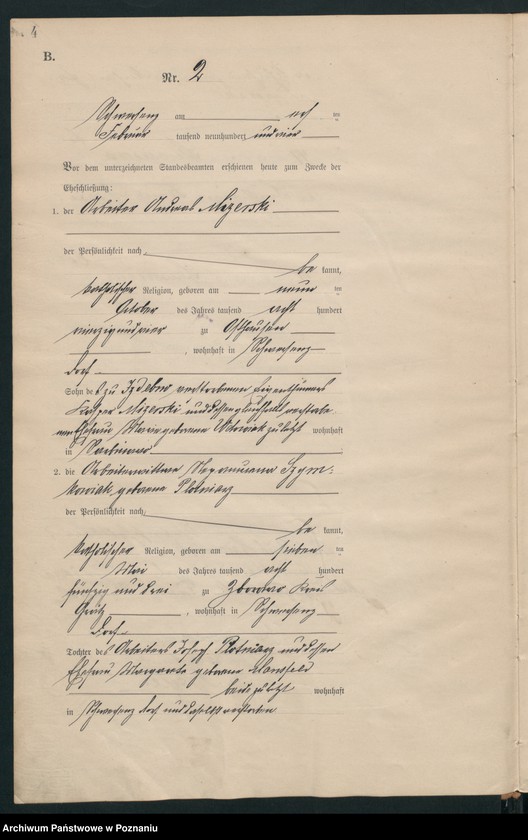 4
B.
Nr. 2
Schwersenz am acht ten
Februar tausend neunhundert und vier
Vor dem unterzeichneten Standesbeamten erschienen heute zum Zwecke der
Eheschließung:
1. der Arbeiter Andreas Mizerski
der Persönlichkeit nach
be kannt,
katholischer Religion, geboren am neun ten
October des Jahres tausend acht hundert
vierzig und vier zu
, wohnhaft in Schwersenz
Dorf
Sohn des zu verstorbenen Eigenthümers
Mizerski und dessen gleichfalls verstorbe-
nen Ehefrau Maria geborene zuletzt wohnhaft
in
2. die Arbeiterwittwe Marianna Szym-
kowiak, geborene Plotniarz
der Persönlichkeit nach
be kannt,
katholischer Religion, geboren am sieben ten
Mai des Jahres tausend acht hundert
fünfzig und drei zu Kreis
Grätz , wohnhaft in Schwersenz
Dorf
Tochter des Arbeiters Josef Plotniarz und dessen
Ehefrau geborene
beide zuletzt wohnhaft
in Schwersenz Dorf und daselbst verstorben
Archiwum Państwowe w Poznaniu